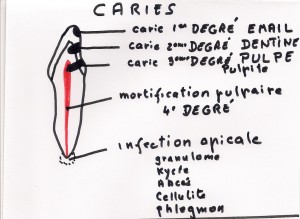 CARIES
carie 1er DEGRÉ EMAIL
carie 2ème DEGRÉ DENTINE
carie 3ème DEGRÉ PULPE
Pulpite
mortification pulpaire
4° DEGRÉ
infection apicale
granulome
Kyste
Abcès
Cellulite
phlegmon